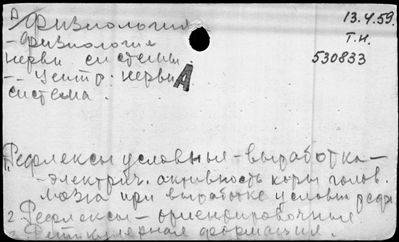 Физиология
13.4.59.
- Физиология
Т.Н.
нервн системы.
530833
- - центр. нервн
А
система.
1. Рефлексы условные - выработка -
- электрич. активность коры голов.
мозга при выработке условн рефл
2 Рефлексы - ориентировочные
3 Ретикулярная формация.